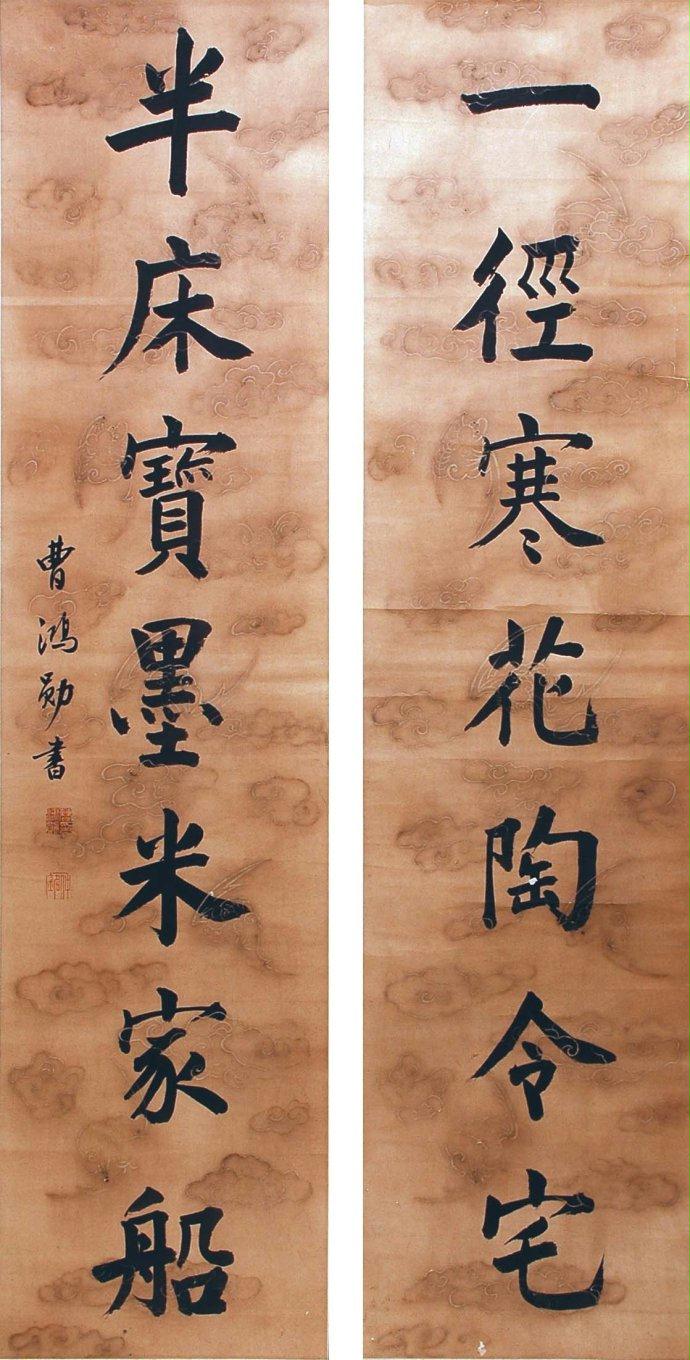 一徑寒花陶令宅
半床寶墨米家船
曹鴻勛書